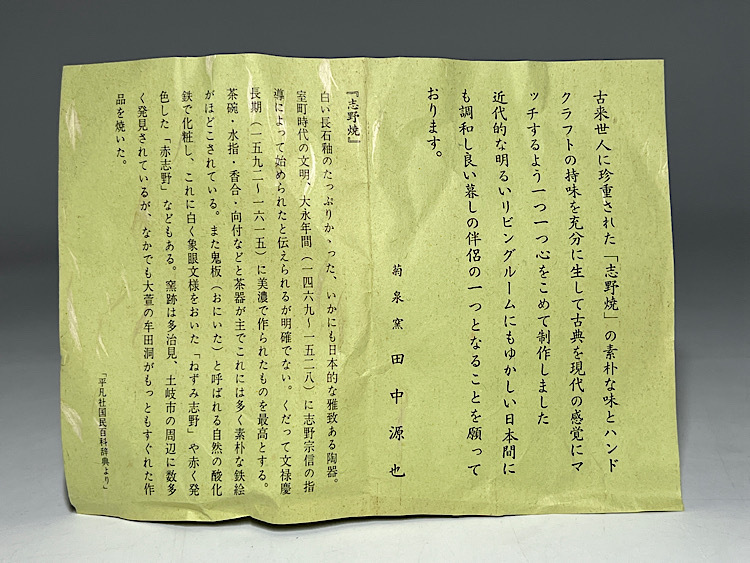 古来世人に珍重された「志野焼」の素朴な味とハンド
クラフトの持味を充分に生して古典を現代の感覚にマ
ッチするよう一つ一つ心をこめて制作しました
近代的な明るいリビングルームにもゆかしい日本間に
も調和し良い暮しの伴侶の一つとなることを願って
おります。
菊泉窯 田中源也
『志野焼』
白い長石釉のたっぷりかゝった、いかにも日本的な雅致ある陶器。
室町時代の文明、大永年間(一四六九〜一五二八)に志野宗信の指
導によって始められたと伝えられるが明確でない。くだって文禄慶
長期(一五九二〜一六一五)に美濃で作られたものを最高とする。
茶碗・水指・香合・向付などと茶器が主でこれには多く素朴な鉄絵
がほどこされている。また鬼板(おにいた)と呼ばれる自然の酸化
鉄で化粧し、これに白く象眼文様をおいた「ねずみ志野」や赤く発
色した「赤志野」などもある。窯跡は多治見、土岐市の周辺に数多
く発見されているが、なかでも大萱の牟田洞がもっともすぐれた作
品を焼いた。
「平凡社国民百科辞典より」